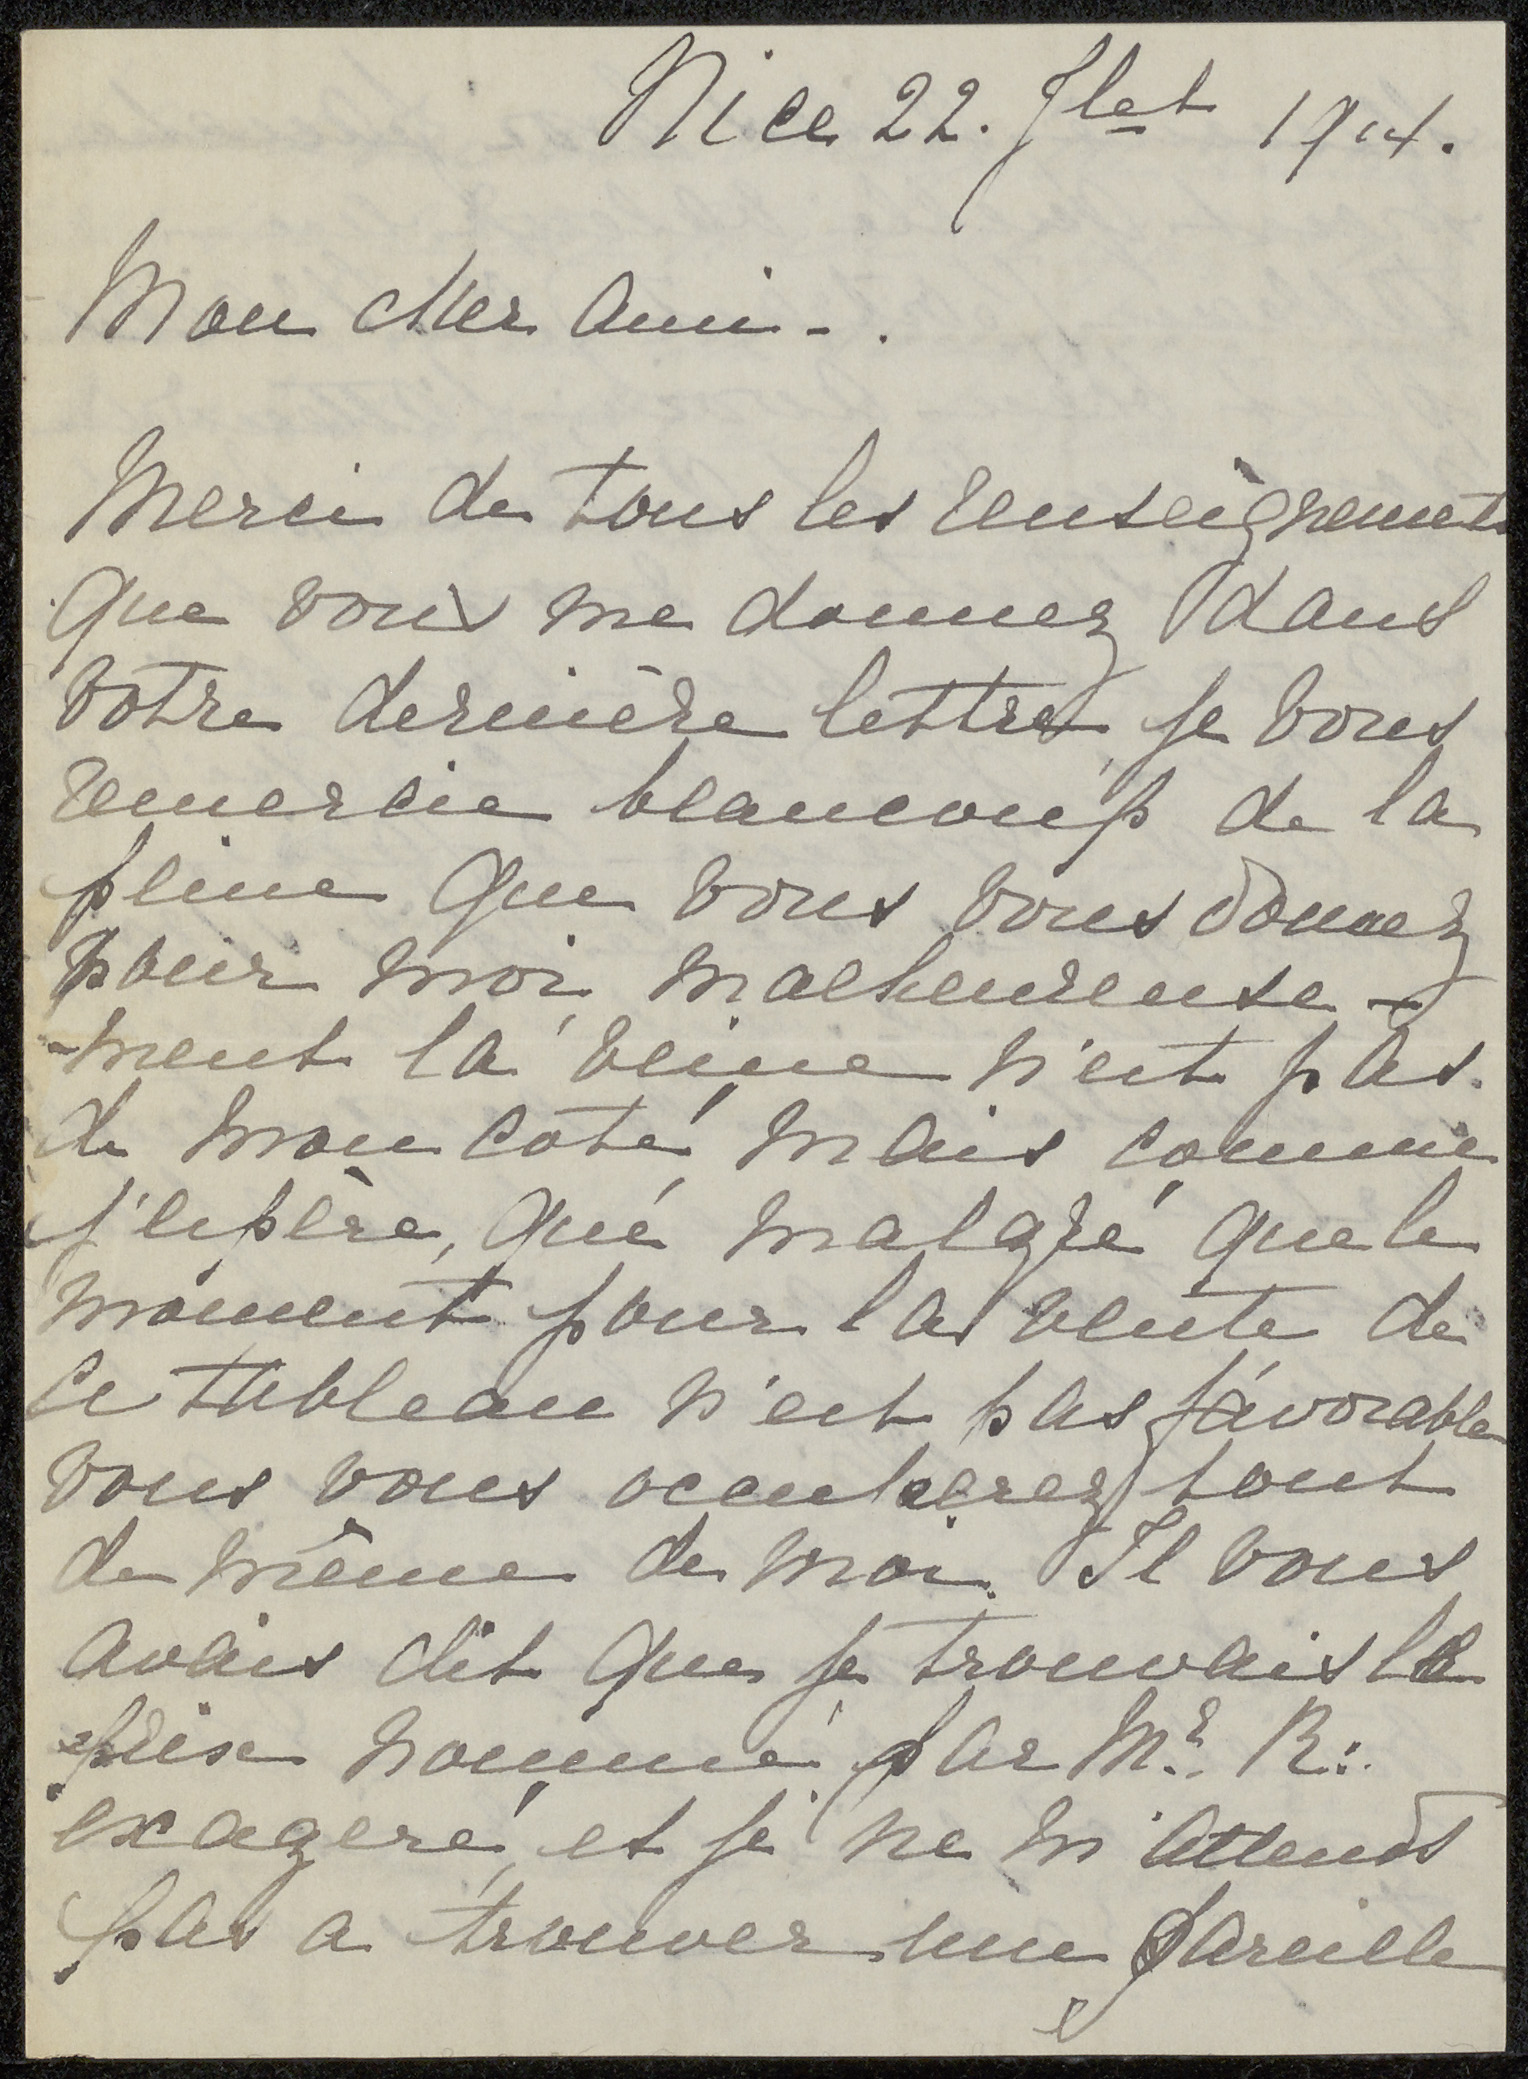 Nice 22. Jlet 1914.
Mon cher ami -.
Merci de tous les renseignements
que vous me donnez dans
votre dernière lettre, je vous
remercie beaucoup de la
peine que vous vous donnez
pour moi, malheureuse -
-ment la veine n'est pas
de mon coté, mais comme
j'espère, que malgré que le
moment pour la vente de
ce tableau n'est pas favorable
vous vous occuperez tout
de même de moi. Il vous
avais dit que je trouvais le
prix nommé par Mr. R:.
exageré, et je ne m'attends
pas a trouver une pareille